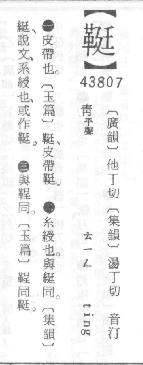 【䩠】
43807
〔廣韻〕他丁切〔集韻〕湯丁切 音汀
青平聲 ㄊㄧㄥ ting
㊀皮帶也。〔玉篇〕䩠、皮帶䩠。㊁糸綬也。與綎同。〔集韻〕
綎、說文、系綬也、或作䩠。㊂與鞓同。〔玉篇〕鞓同䩠。